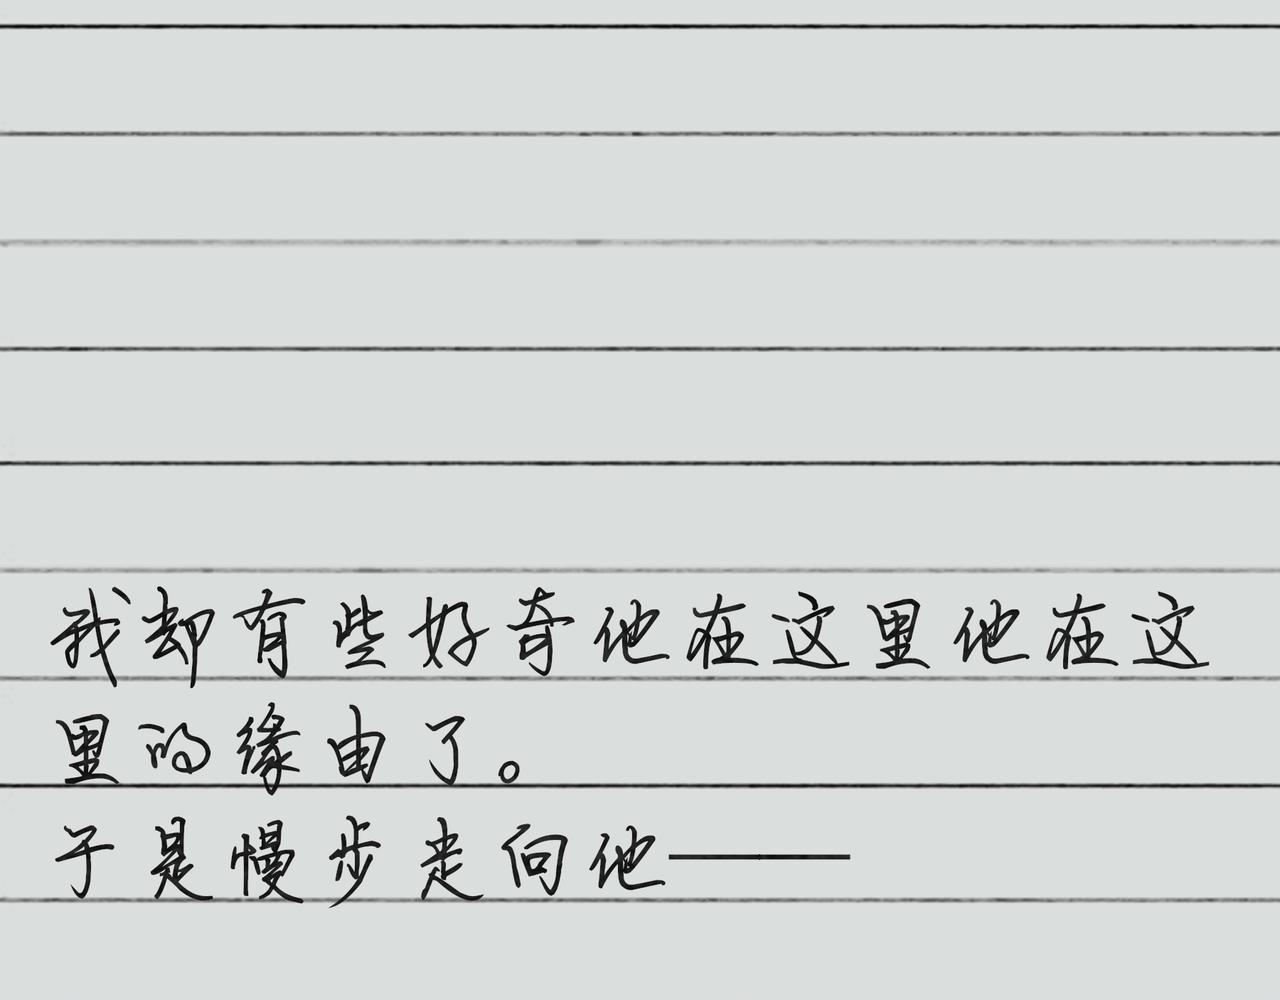 我却有些好奇他在这里他在这
里的缘由了。
于是慢步走向他——